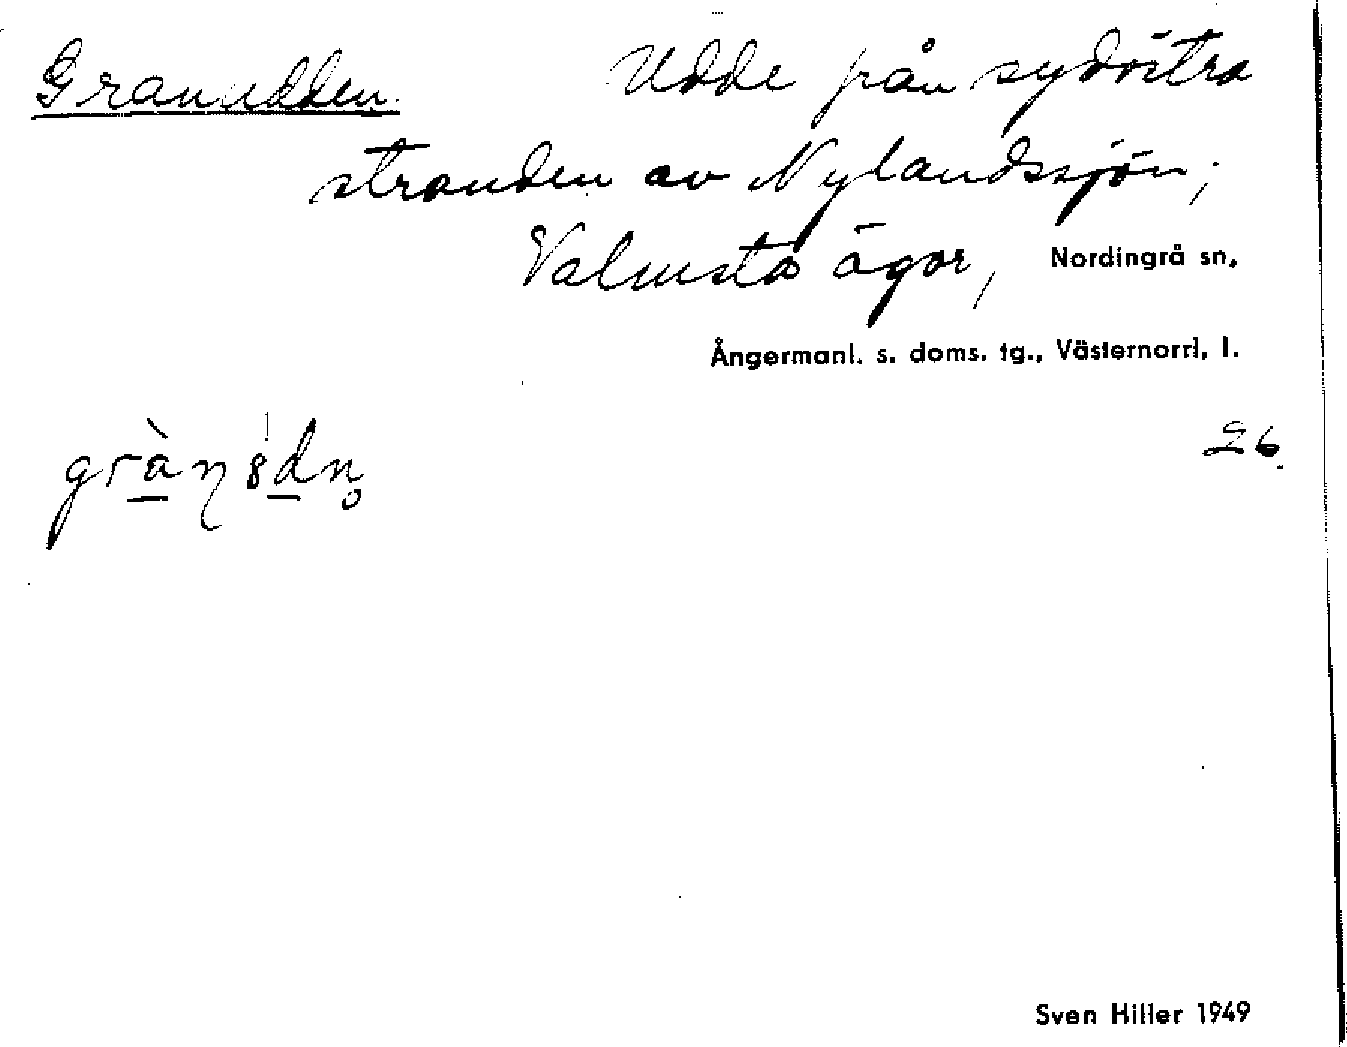 Granudden. Udde från sydöstra
stranden av Nylandssjön;
Valmsta ägor, Nordingrå sn,
Ångermanl. s. doms. tg., Västernorrl. l.
26.
Sven Hiller 1949